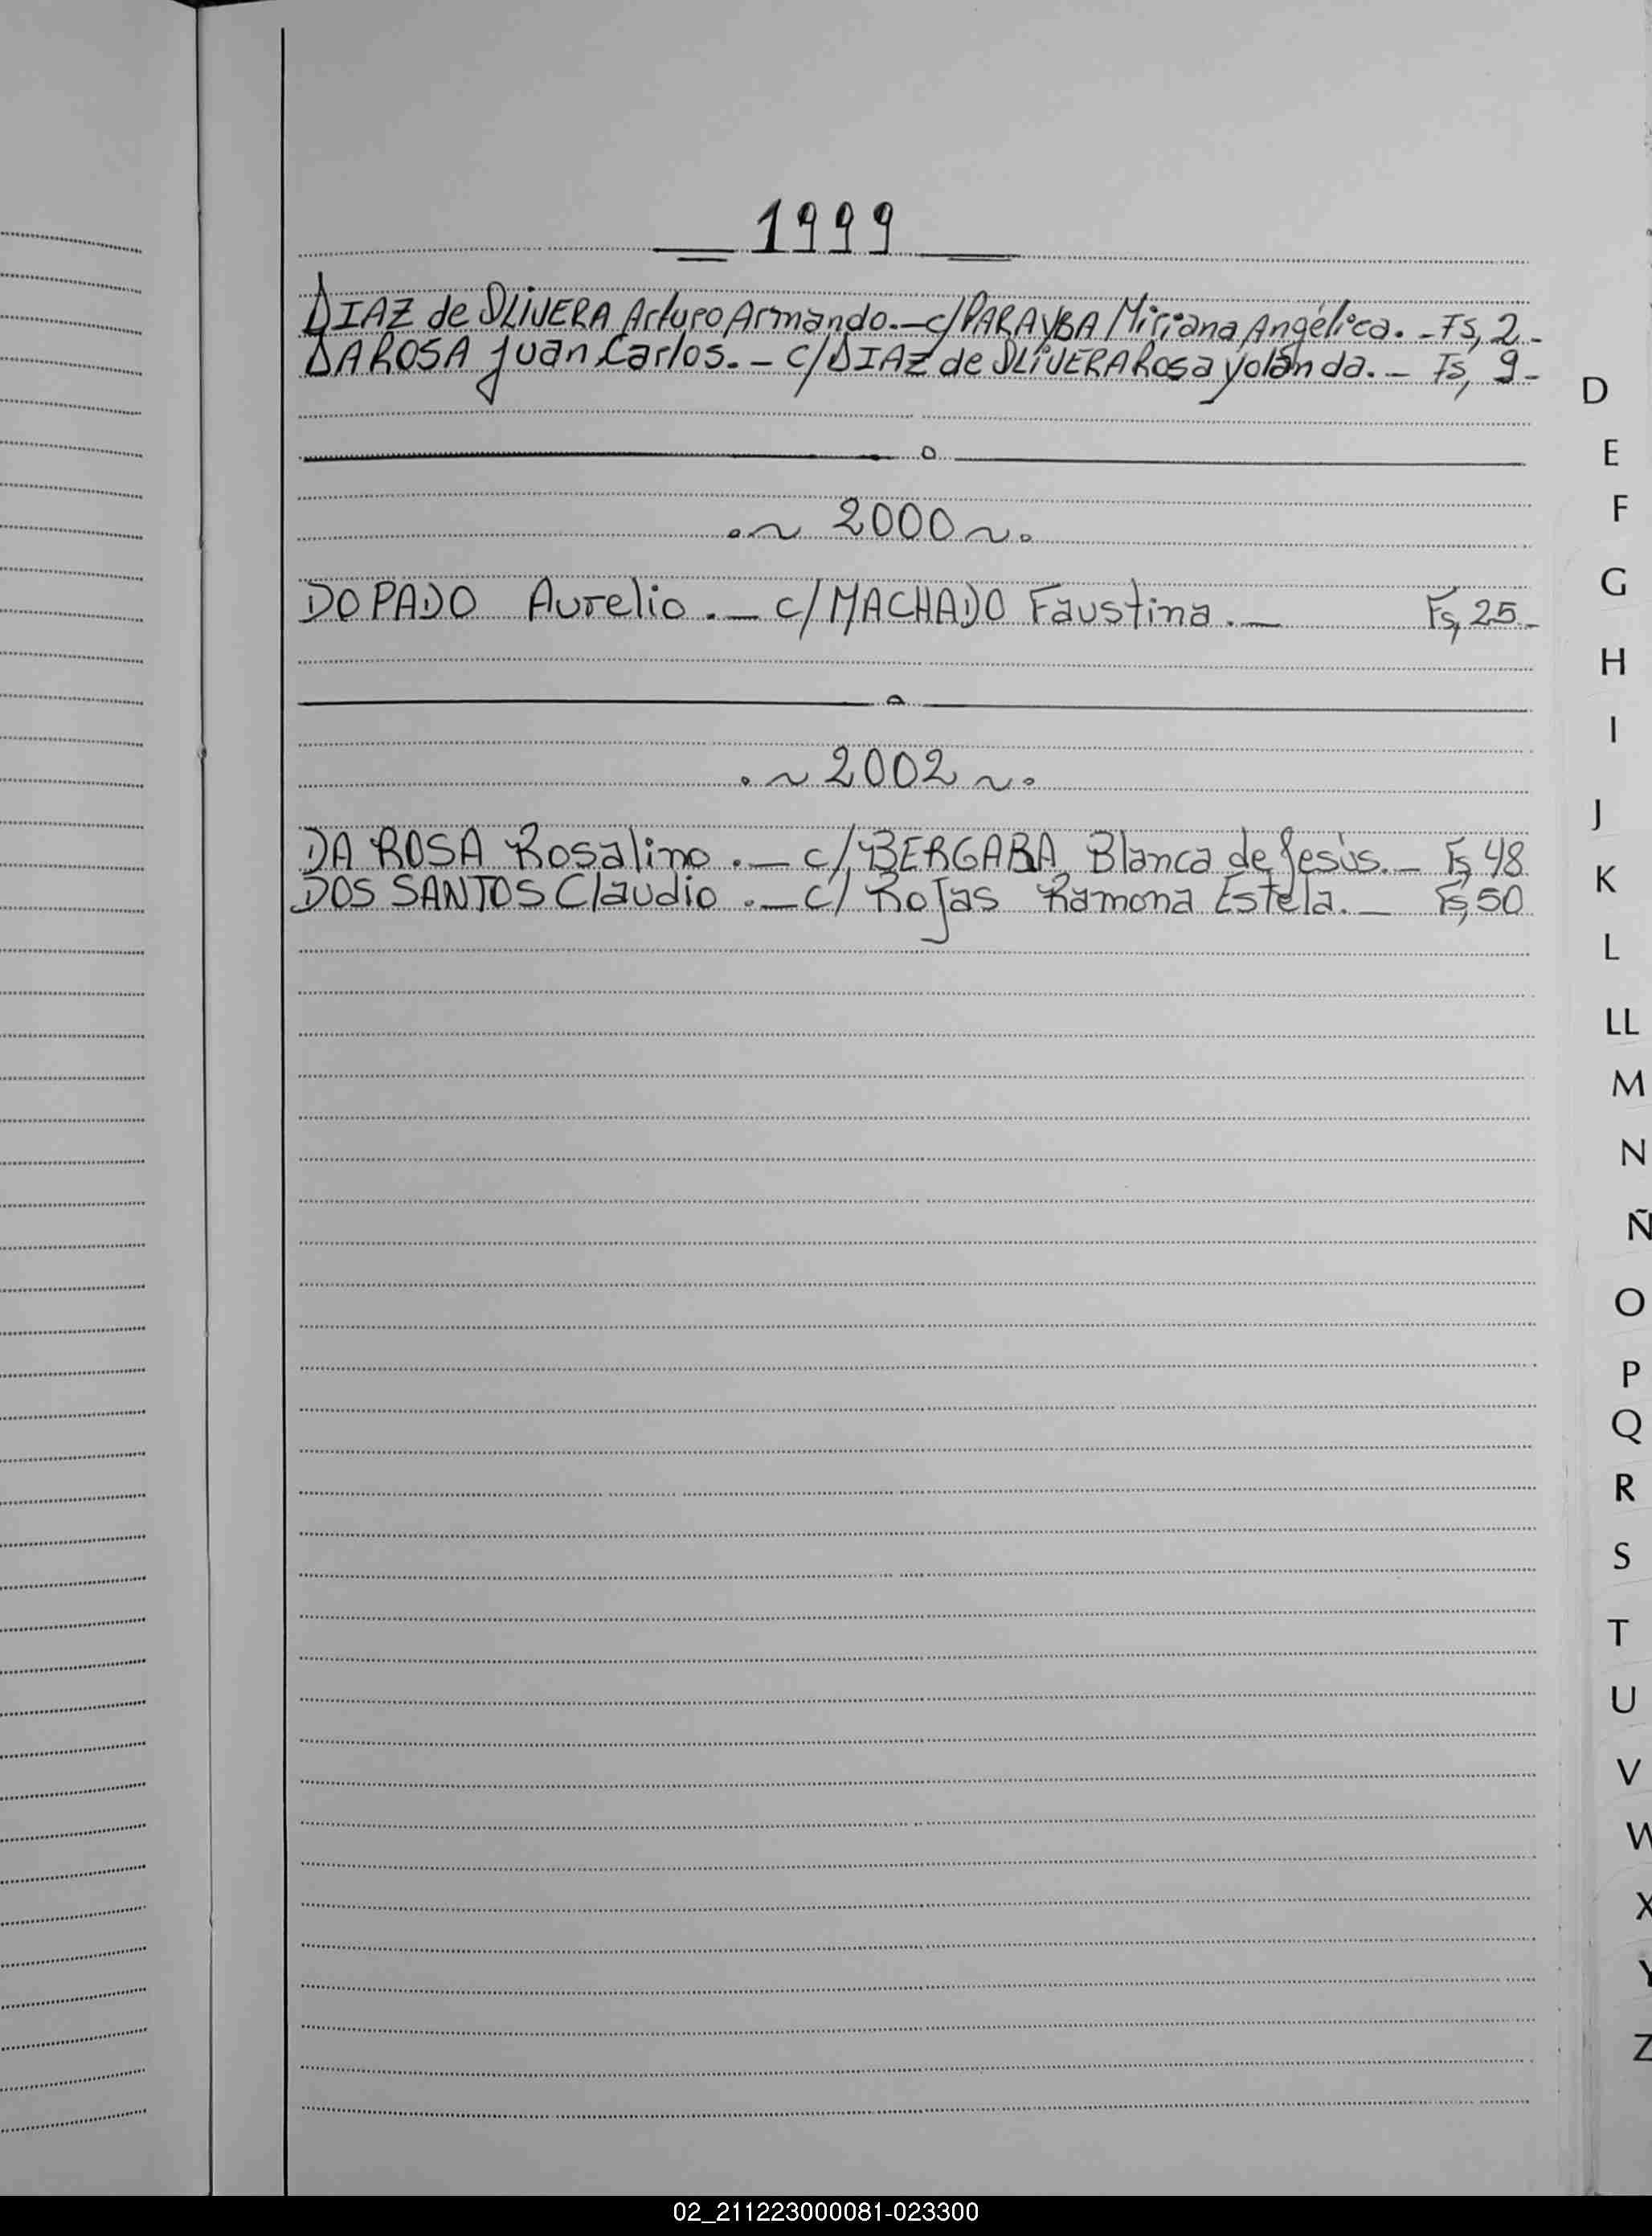 1999
DIAZ de OLiVERA Arturo Armando.- c/PARAYBA Miriana Angélica. - Fs, 2 -
DA ROSA Juan Carlos. - c/DIAZ de OLiVERA Rosa Yolanda. - Fs, 9 -
2000
DOPADO Aurelio. - c/MACHADO Faustina. - Fs, 25 -
2002
DA ROSA Rosalino. - c/BERGARA Blanca de Jesús. - Fs, 48
DOS SANTOS Claudio. - c/ Rojas Ramona Estela. - Fs, 50
D
E
F
G
H
I
J
K
L
LL
M
N
Ñ
O
P
Q
R
S
T
U
V
W
X
Y
Z
02_211223000081-023300